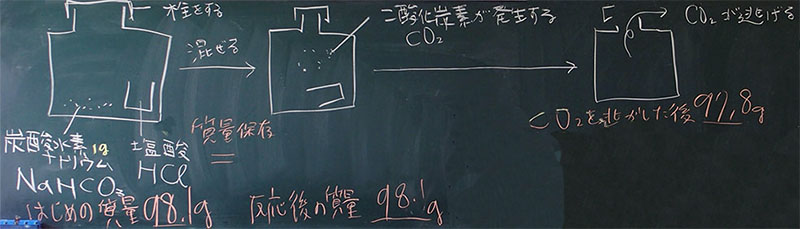 栓をする
混ぜる
二酸化炭素が発生する
CO₂
CO₂が逃げる
質量保存
CO₂を逃がした後 97.8g
炭酸水素 1g
ナトリウム
NaHCO₃
塩酸
HCl
はじめの質量 98.1g
反応後の質量 98.1g